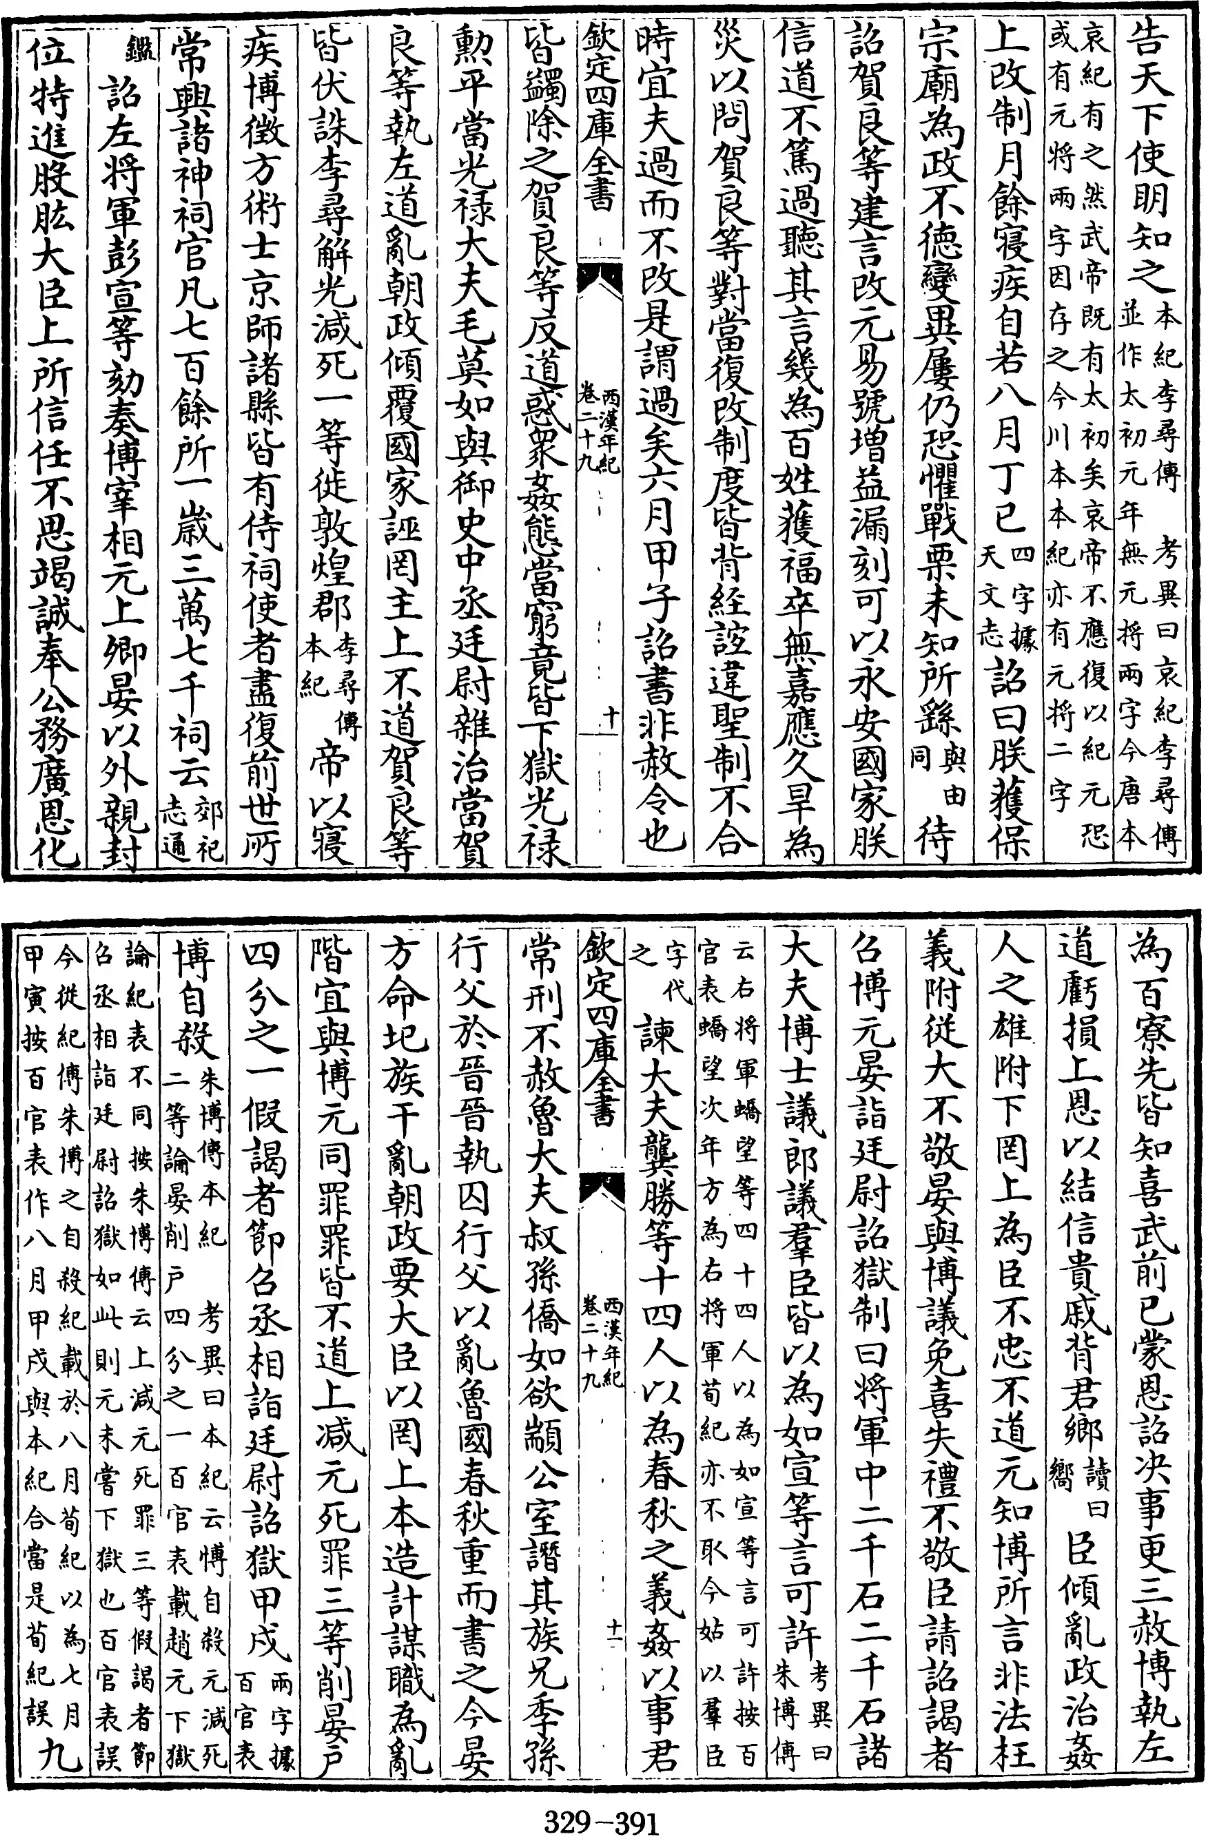 告天下使明知之本紀李尋傳　考異曰哀紀李尋傳並作太初元年無元將兩字今唐本
哀紀有之然武帝既有太初矣哀帝不應復以紀元恐或有元將兩字因存之今川本本紀亦有元將二字
上改制月餘寢疾自若八月丁巳四字據天文志詔曰朕獲保
宗廟為政不德變異屢仍恐懼戰栗未知所繇與由同待
詔賀良等建言改元易號增益漏刻可以永安國家朕
信道不篤過聽其言幾為百姓獲福卒無嘉應久旱為
災以問賀良等對當復改制度皆背經誼違聖制不合
時宜夫過而不改是謂過矣六月甲子詔書非赦令也
欽定四庫全書　西漢年紀卷二十九　十
皆蠲除之賀良等反道惑衆姦態當窮竟皆下獄光禄
勳平當光禄大夫毛莫如與御史中丞廷尉雜治當賀
良等執左道亂朝政傾覆國家誣罔主上不道賀良等
皆伏誅李尋解光減死一等徙敦煌郡李尋傳本紀帝以寢
疾博徵方術士京師諸縣皆有侍祠使者盡復前世所
常興諸神祠官凡七百餘所一歲三萬七千祠云郊祀志通
鑑詔左將軍彭宣等劾奏博宰相元上卿晏以外親封
位特進股肱大臣上所信任不思竭誠奉公務廣恩化
為百寮先皆知喜武前已蒙恩詔决事更三赦博執左
道虧損上恩以結信貴戚背君鄉讀曰嚮臣傾亂政治姦
人之雄附下罔上為臣不忠不道元知博所言非法枉
義附從大不敬晏與博議免喜失禮不敬臣請詔謁者
召博元晏詣廷尉詔獄制曰將軍中二千石二千石諸
大夫博士議郎議羣臣皆以為如宣等言可許考異曰朱博傳
云右將軍蟜望等四十四人以為如宣等言可許按百官表蟜望次年方為右將軍荀紀亦不取今姑以羣臣
字代之諫大夫龔勝等十四人以為春秋之義姦以事君
欽定四庫全書　西漢年紀卷二十九　十一
常刑不赦魯大夫叔孫僑如欲顓公室譖其族兄季孫
行父於晉晉執囚行父以亂魯國春秋重而書之今晏
方命圮族干亂朝政要大臣以罔上本造計謀職為亂
階宜與博元同罪罪皆不道上減元死罪三等削晏户
四分之一假謁者節召丞相詣廷尉詔獄甲戌兩字據百官表
博自殺朱博傳本紀　考異曰本紀云博自殺元減死二等論晏削户四分之一百官表載趙元下獄
論紀表不同按朱博傳云上減元死罪三等假謁者節召丞相詣廷尉詔獄如此則元未嘗下獄也百官表誤
今從紀傳朱博之自殺紀載於八月荀紀以為七月甲寅按百官表作八月甲戌與本紀合當是荀紀誤九
329-391